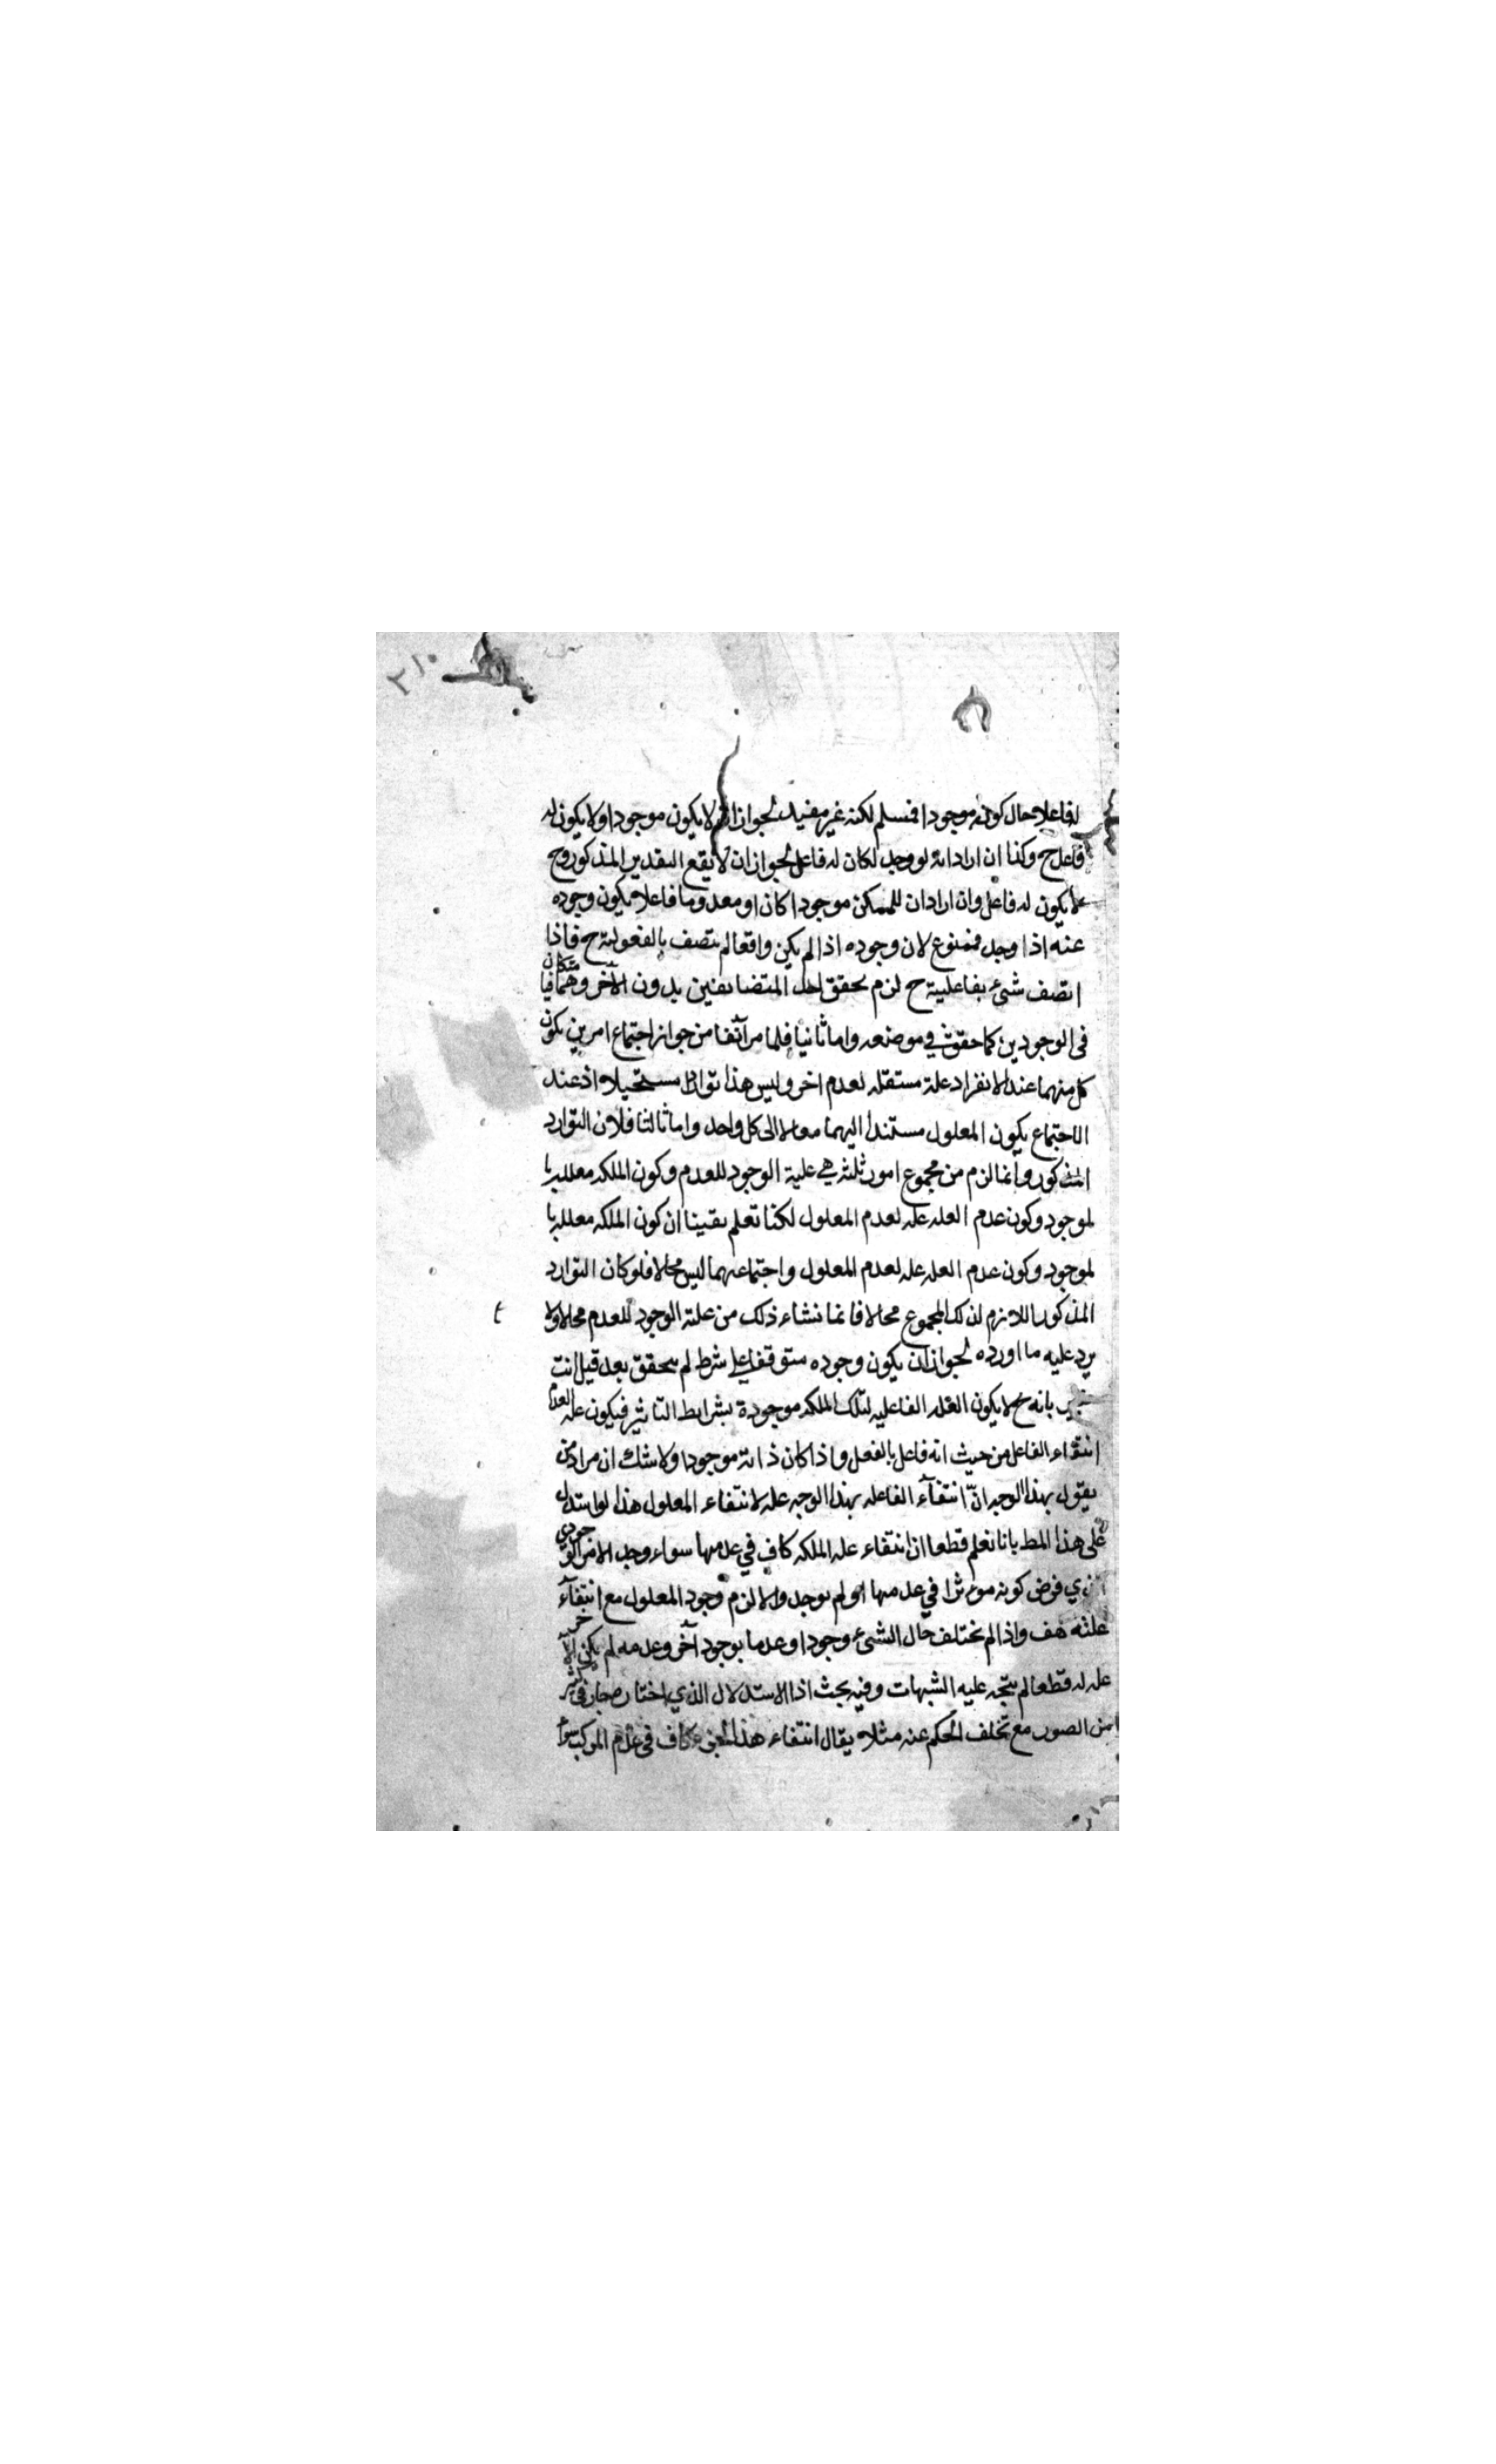 ٢١٠
له فاعلا حال كونه موجودا فمسلم لكنه غير مفيد لجواز ان لا يكون موجودا ولا يكون له
فاعل ح وكذا ان اراد انه لو وجد لكان له فاعل لجواز ان لا يقع التقدير المذكور وح
لا يكون له فاعل وان اراد ان للممكن موجودا كان او معدوما فاعلا يكون وجوده
عنه اذا وجد فممنوع لان وجوده اذا لم يكن واقعا لم يتصف بالمفعولية ح فاذا
اتصف شئ بفاعلية ح لزم تحقق احد المتضايفين بدون الآخر وهما متكافيان
في الوجودين كما حقق في موضعه واما ثانيا فلما مر آنفا من جواز اجتماع امرين يكون
كل منهما عند الانفراد علة مستقله لعدم اخر وليس هذا تواردا مستحيلا اذ عند
الاجتماع يكون المعلول مستندا اليهما معا لا الى كل واحد واما ثالثا فلان التوارد
المذكور وانما لزم من مجموع امور ثلثه هي علية الوجود للعدم وكون الملكه معلله با
لموجود وكون عدم العله عله لعدم المعلول لكنا نعلم يقينا ان كون الملكه معلله با
لموجود وكون عدم العله عله لعدم المعلول واجتماعهما ليس محالا فلو كان التوارد
المذكور اللازم لذلك المجموع محالا فانما نشاء ذلك من علية الوجود للعدم محالا ولا
يرد عليه ما اورده لجواز ان يكون وجوده متوقفا على شرط لم يتحقق بعد قيل انت
خبير بانه ح لا يكون العله الفاعليه لتلك الملكه موجودة بشرايط التاثير فيكون عله العدم
انتفاء الفاعل من حيث انه فاعل بالفعل واذا كان ذاته موجودا ولا شك ان مراد من
يقول بهذا الوجه انّ انتفآء الفاعله بهذا الوجه عله لانتفاء المعلول هذا لو استدل
على هذا المط بانا نعلم قطعا ان انتفاء عله الملكه كاف في عدمها سواء وجد الامر الوجودي
الذي فرض كونه موثرا في عدمها او لم يوجد والا لزم وجود المعلول مع انتفآء
علته هف واذا لم يختلف حال الشئ وجودا وعدما بوجود آخر وعدمه لم يكن الآخر
عله له قطعا لم يتجه عليه الشبهات وفيه بحث اذ الاستدلال الذي اختاره جار في كثير
من الصور مع تخلف الحكم عنه مثلا يقال انتفاء هذا الجزء كاف في عدم المركب سواء